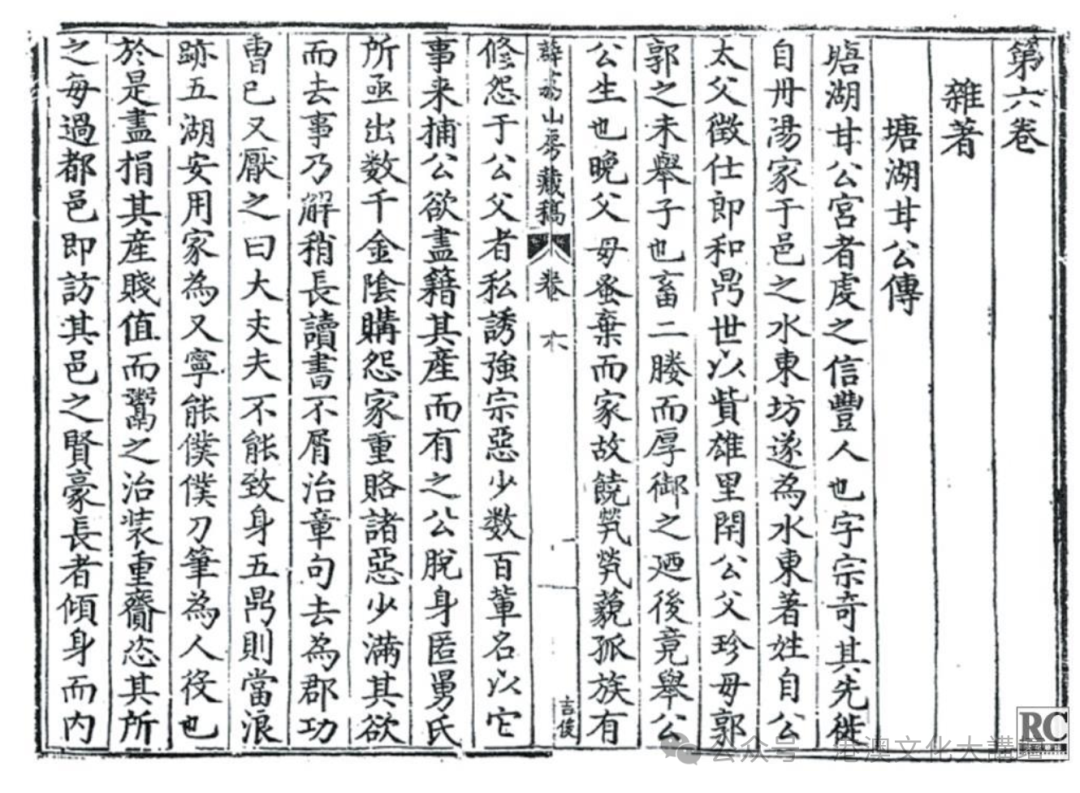 第六卷
雜著
塘湖甘公傳
塘湖甘公宮者虔之信豐人也字宗奇其先徙
自丹湯家于邑之水東坊遂為水東著姓自公
太父徵仕郎和鼎世以貲雄里閈公父珍毋郭
郭之未舉子也畜二媵而厚御之廼後竟舉公
公生也晚父毋蚤棄而家故饒煢煢藐孤族有
薜荔山房藏稿 卷六 一 吉俊
修怨于公父者私誘強宗惡少数百輩名以它
事来捕公欲盡籍其産而有之公脫身匿舅氏
所亟出数千金陰購怨家重賂諸惡少滿其欲
而去事乃解稍長讀書不屑治章句去為郡功
曹已又厭之曰大丈夫不能致身五鼎則當浪
跡五湖安用家為又寧能僕僕刀筆為人役也
於是盡捐其産賤值而鬻之治装重齎恣其所
之每過都邑即訪其邑之賢豪長者傾身而内
RC
公众号 · 港澳文化大講